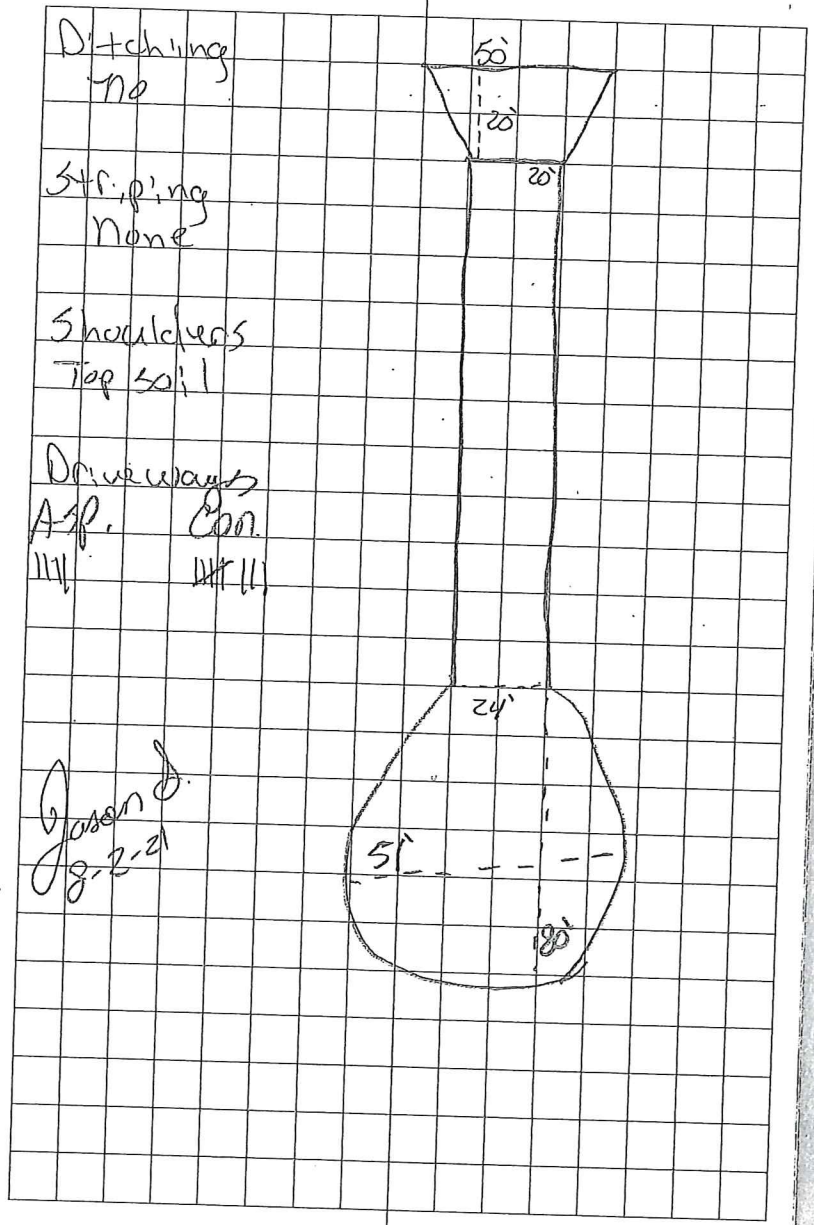 Ditching
no
Striping
None
Shoulders
Top soil
Driveways
Asp. Con.
|||| |||| |||
Jason D.
8-2-21
50'
20'
20'
24'
51'
80'